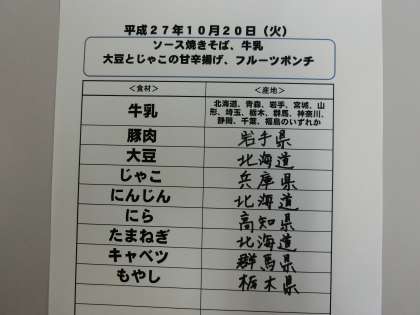 平成27年10月20日（火）
ソース焼きそば、牛乳
大豆とじゃこの甘辛揚げ、フルーツポンチ
＜食材＞ ＜産地＞
牛乳 北海道、青森、岩手、宮城、山
形、埼玉、栃木、群馬、神奈川、
静岡、千葉、福島のいずれか
豚肉 岩手県
大豆 北海道
じゃこ 兵庫県
にんじん 北海道
にら 高知県
たまねぎ 北海道
キャベツ 群馬県
もやし 栃木県